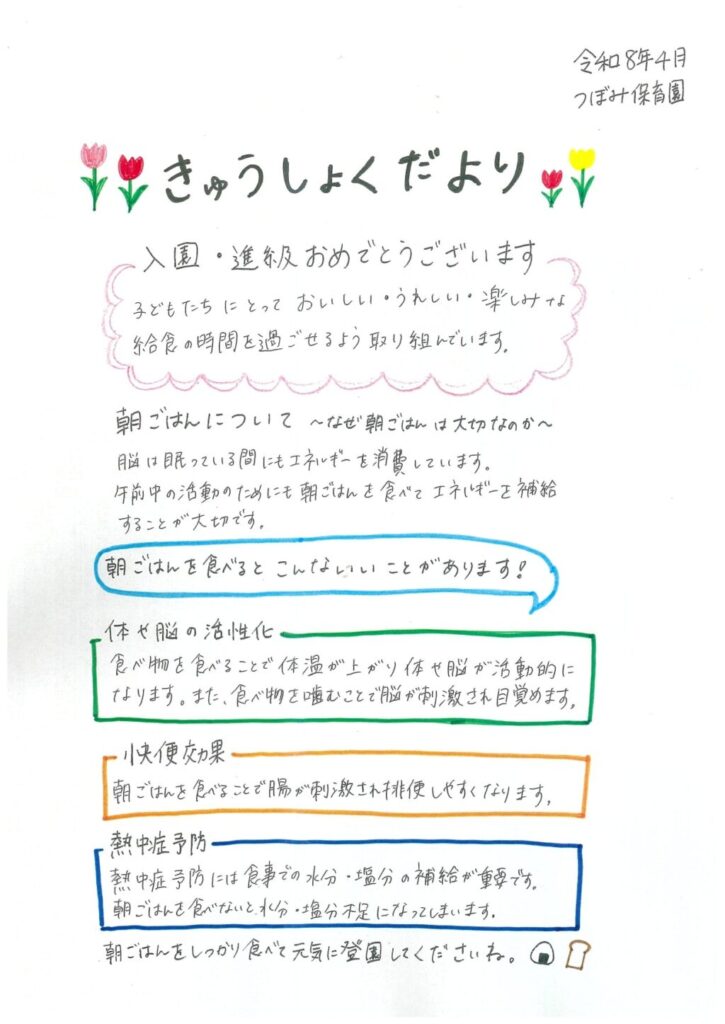 令和8年4月
つぼみ保育園
きゅうしょくだより
入園・進級おめでとうございます
子どもたちにとっておいしい・うれしい・楽しみな
給食の時間を過ごせるよう取り組んでいます。
朝ごはんについて ～なぜ朝ごはんは大切なのか～
脳は眠っている間にもエネルギーを消費しています。
午前中の活動のためにも朝ごはんを食べてエネルギーを補給
することが大切です。
朝ごはんを食べるとこんないいことがあります!
体や脳の活性化
食べ物を食べることで体温が上がり体や脳が活動的に
なります。また、食べ物を噛むことで脳が刺激され目覚めます。
快便効果
朝ごはんを食べることで腸が刺激され排便しやすくなります。
熱中症予防
熱中症予防には食事での水分・塩分の補給が重要です。
朝ごはんを食べないと水分・塩分不足になってしまいます。
朝ごはんをしっかり食べて元気に登園してくださいね。